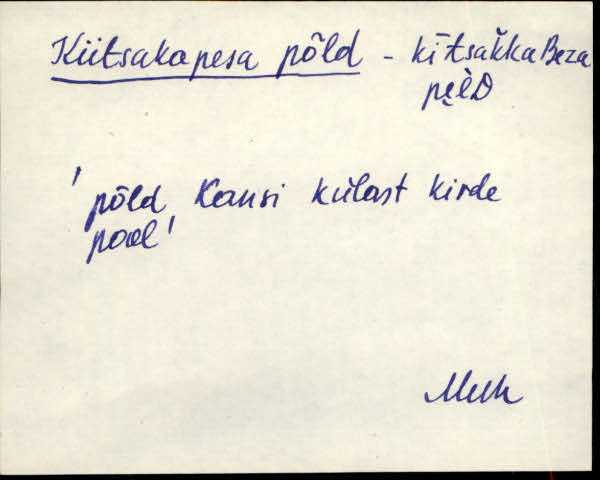 Kiitsakapesa põld - kītsak̆kaBeza
pe̮lD
'põld Kansi külast kirde
pool'